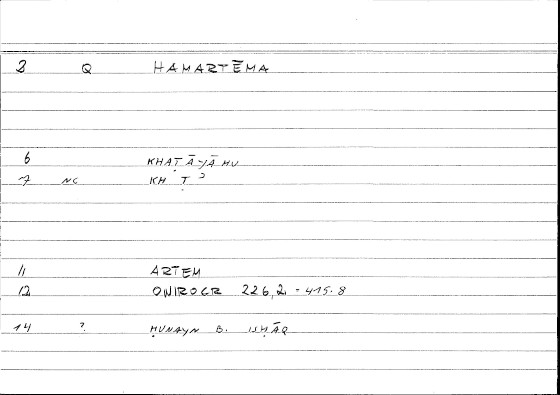 2 Q HAMARTĒMA
6 KHAṬĀYĀHU
7 NC KH Ṭ ʾ
11 ARTEM
12 ONIROCR 226,2 = 415.8
14 ? ḤUNAYN B. ISḤĀQ